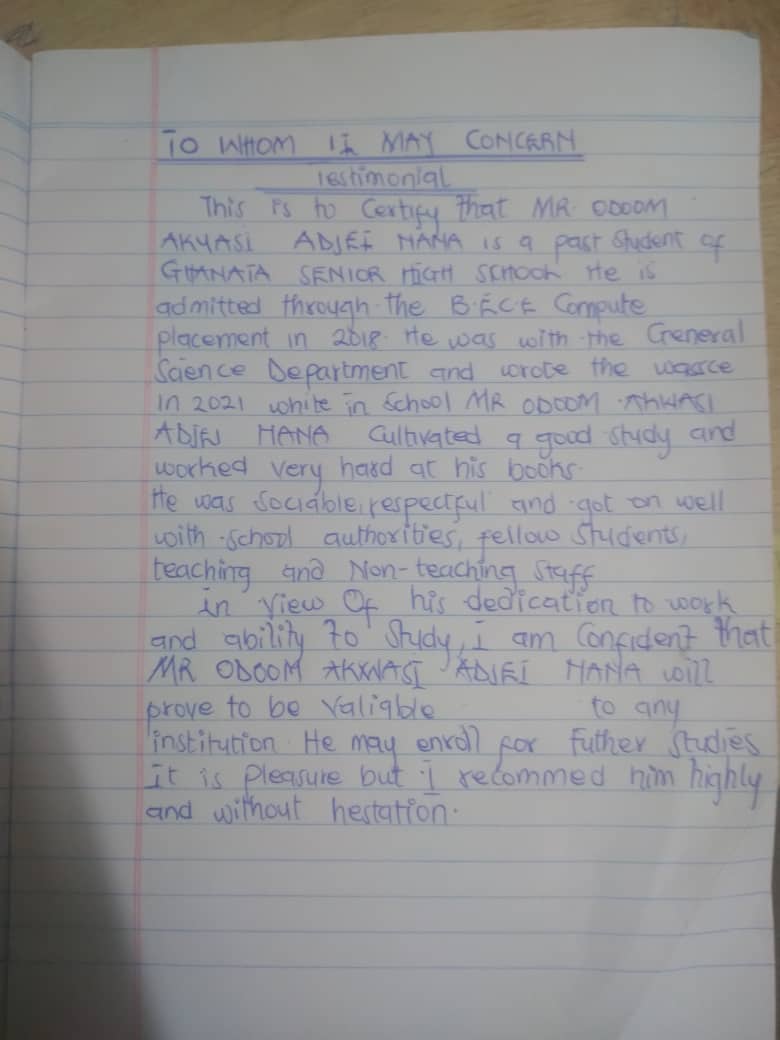 TO WHOM IT MAY CONCERN
Testimonial
This is to Certify that MR ODOOM
AKWASI ADJEI HANA is a past Student of
GHANATA SENIOR HIGH SCHOOL He is
admitted through the B.E.C.E Compute
placement in 2018. He was with the General
Science Department and wrote the wassce
in 2021 white in School MR ODOOM AKWASI
ADJEI HANA Cultivated a good study and
worked very hard at his books.
He was Sociable, respectful and got on well
with school authorities, fellow Students,
teaching and Non-teaching Staff
in view Of his dedication to work
and ability To Study, I am Confident that
MR ODOOM AKWASI ADJEI HANA will
prove to be Valiable to any
institution. He may enroll for Futher Studies
It is Pleasure but I recommed him highly
and without hestation.